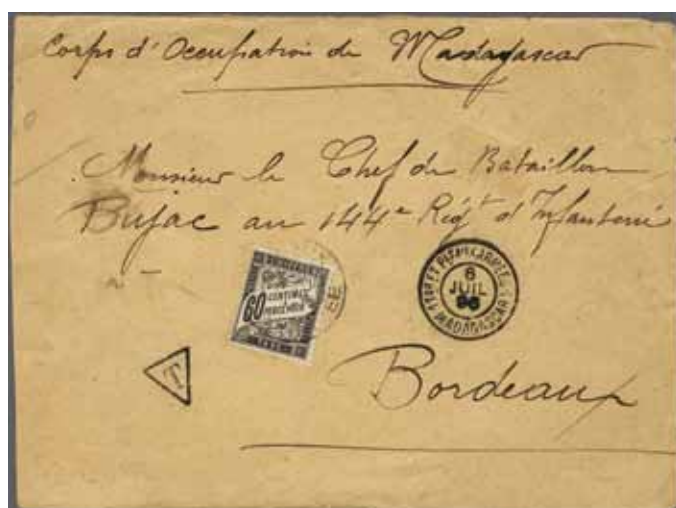 Corps d'Occupation de Madagascar
Monsieur le Chef de Bataillon
Bujac au 144e Régt d'Infanterie
60
CENTIMES
À PERCEVOIR
TAXE
6
JUIL
96
MADAGASCAR
T
Bordeaux